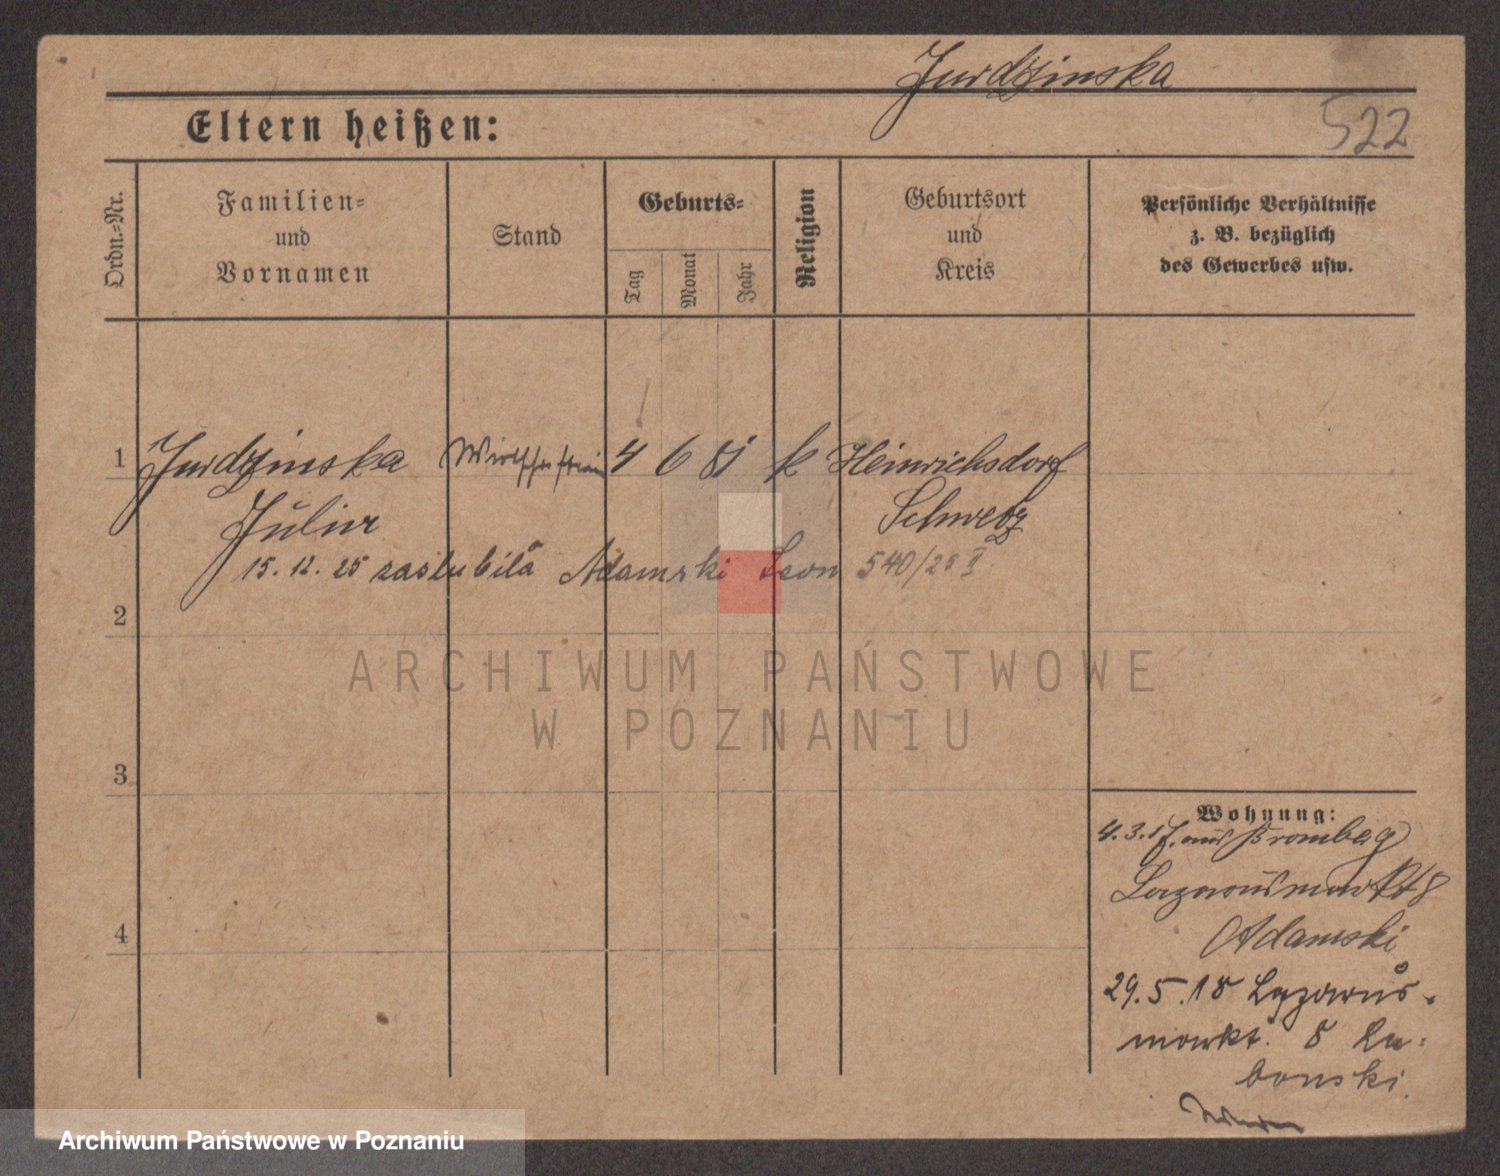 Jurdzinska
522
Eltern heißen:
Ordn.-Nr.
Familien-
und
Vornamen
Stand
Geburts-
Tag
Monat
Jahr
Religion
Geburtsort
und
Kreis
Persönliche Verhältnisse
z. B. bezüglich
des Gewerbes usw.
1 Jurdzinska Wirtschafterin 4 6 81 k Heinrichsdorf
Schwetz
15. 12. 25 zaslubila Adamski Leon 540/25 II
2
3
4
Wohnung:
4.3.17. aus Bromberg
Lazarusmarkt 8
Adamski
29.5.18 Lazarus-
markt. 8 La-
bonski.
ARCHIWUM PAŃSTWOWE
W POZNANIU
Archiwum Państwowe w Poznaniu